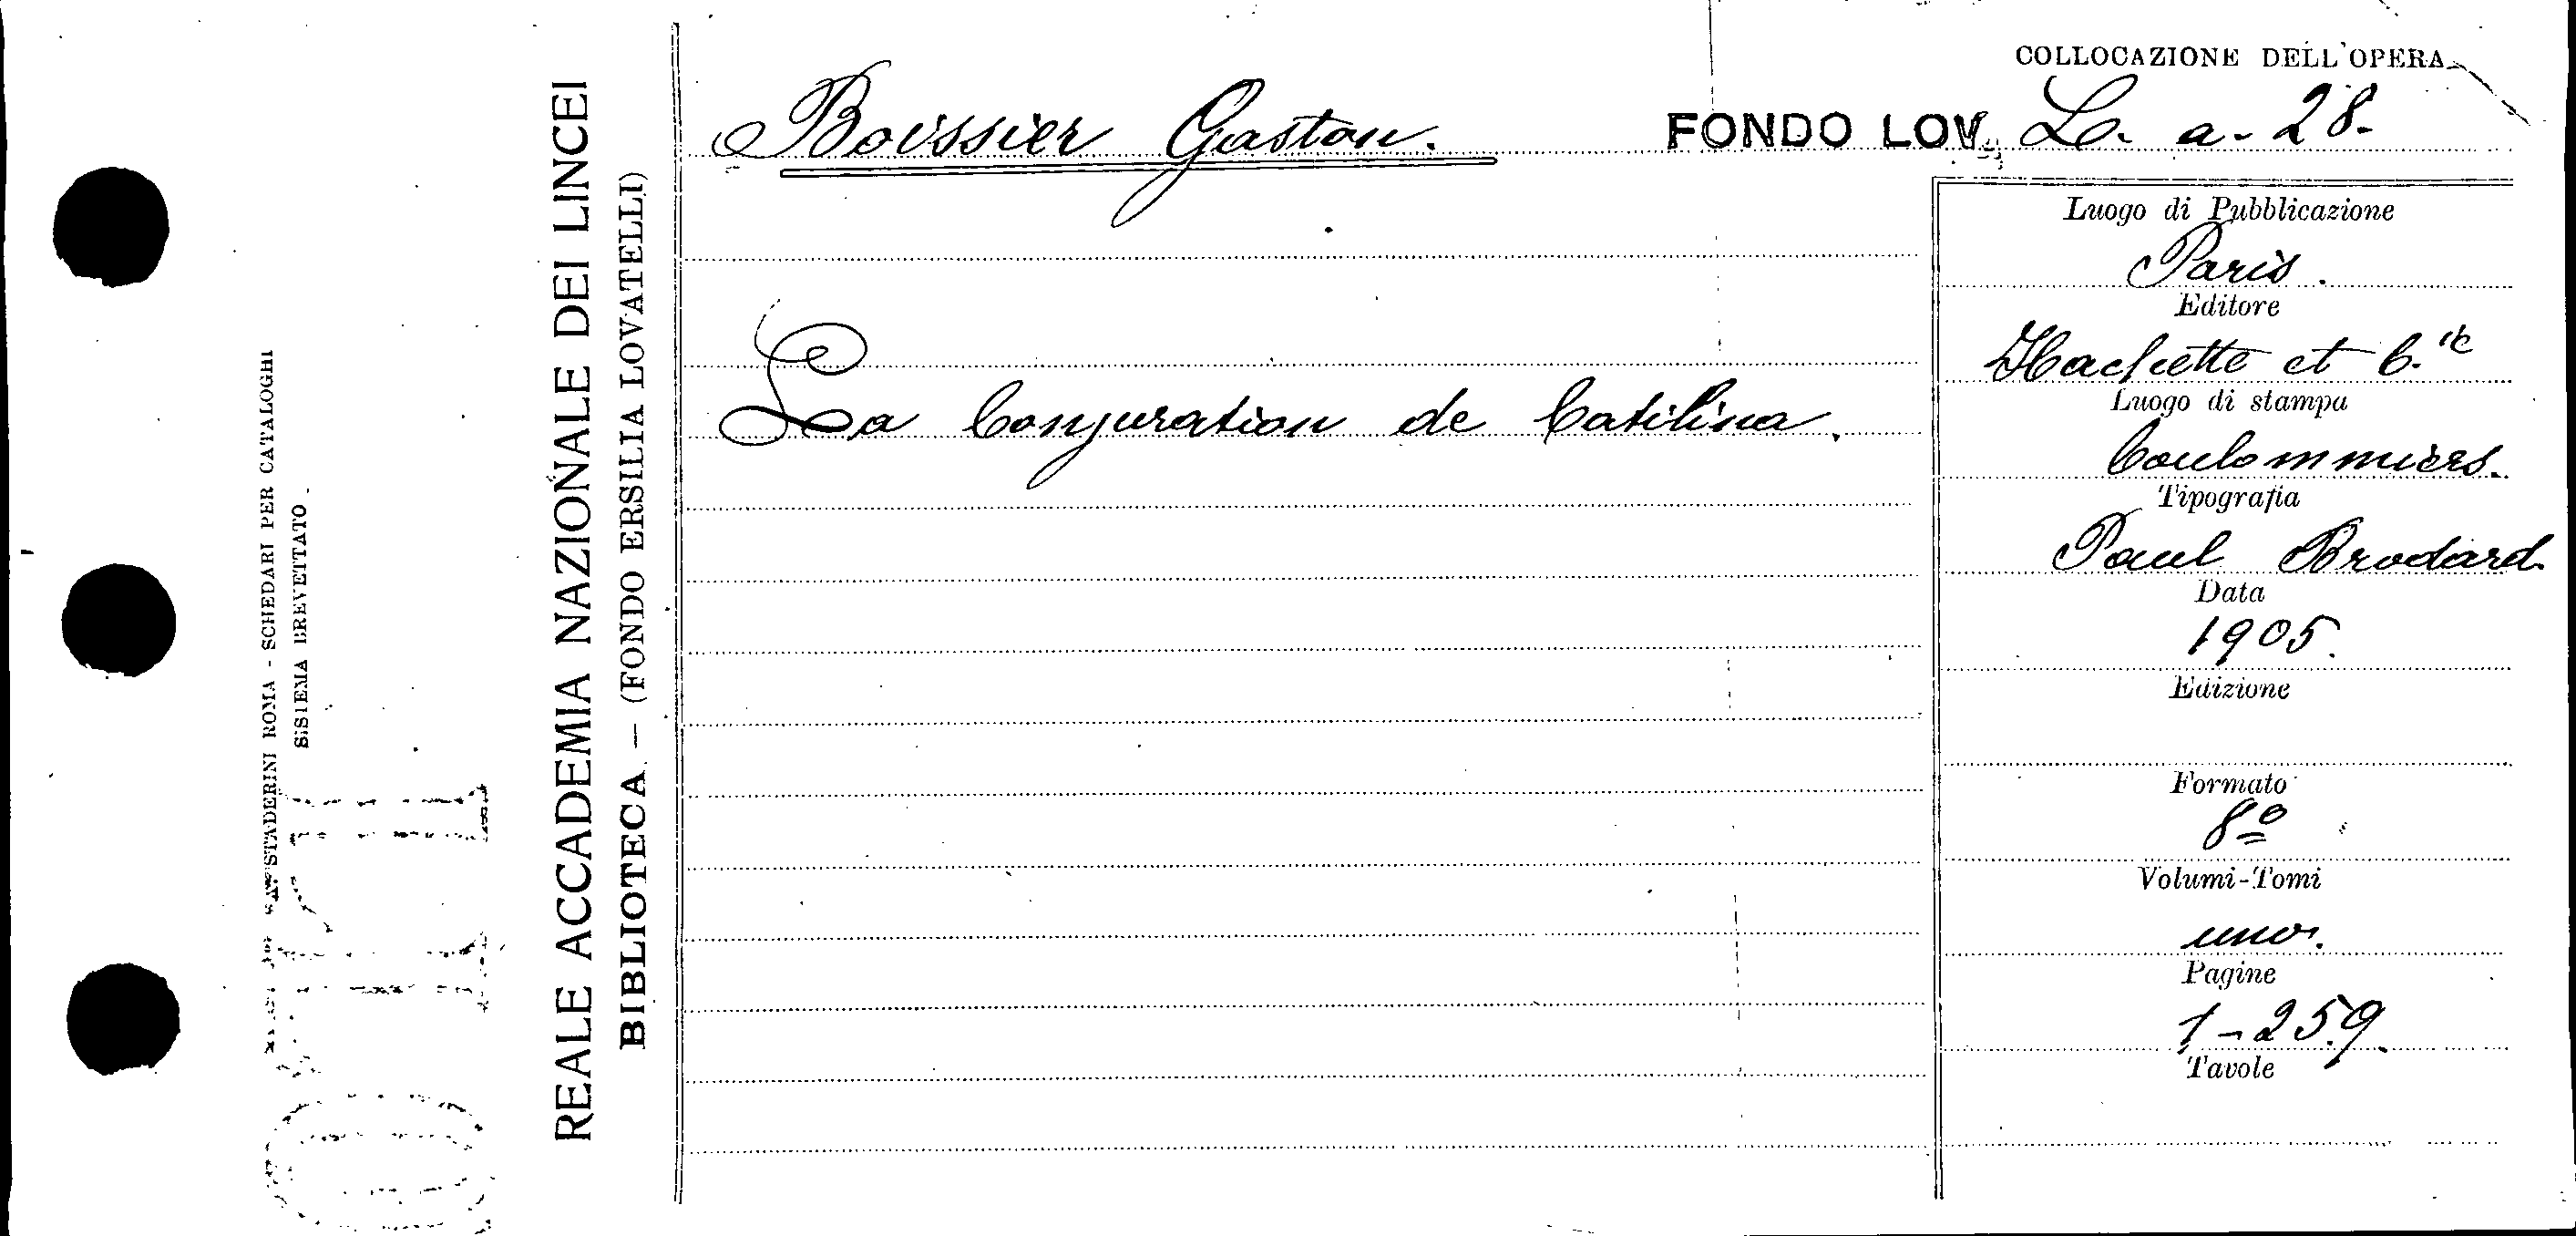 COLLOCAZIONE DELL'OPERA
Boissier Gaston.
FONDO LOV. L. a. 28.
La Conjuration de Catilina.
Luogo di Pubblicazione
Paris.
Editore
Hachette et C.ie
Luogo di stampa
Coulommiers.
Tipografia
Paul Brodard.
Data
1905.
Edizione
Formato
8º
Volumi-Tomi
uno.
Pagine
1-259.
Tavole
REALE ACCADEMIA NAZIONALE DEI LINCEI
BIBLIOTECA - (FONDO ERSILIA LOVATELLI)
STADERINI ROMA - SCHEDARI PER CATALOGHI
SISTEMA BREVETTATO